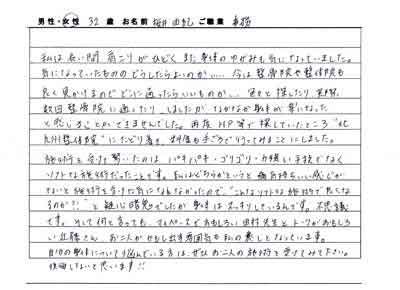 男性・女性 32 歳 お名前 桜井 由紀 ご職業 事務
私は長い間肩こりがひどく また身体のゆがみも気になっていました。
気になっていたもののどうしたらよいのか… 今は整骨院や整体院も
良く見かけるのでどこに通ったらいいものか… 色々と探したり 実際、
数回整骨院に通ったりしましたが なかなか身体が楽になった
と感じることができませんでした。再度HP等で探していたところ"北
九州整体院"にたどり着き、料金も手ごろで行ってみることにしました。
施術を受けて驚いたのは バキバキ・ゴリゴリ・力強い手技でなく
ソフトな施術だったことです。私はどちらかというと痛気持ちいい感じが
ないと施術を受けた気になれなかったので、"こんなソフトな施術で良くなる
のか!?"と疑心暗鬼でしたが 身体はスッキリしているんです。不思議
です。そして何と言っても、マイペースでおもしろい田村先生とトークがおもしろ
い 近藤さん。お二人がかもし出す雰囲気も私の癒しとなっています。
自分の身体について悩んでいる方は、ぜひお二人の施術を受けてみて下さい。
後悔しないと思います!!